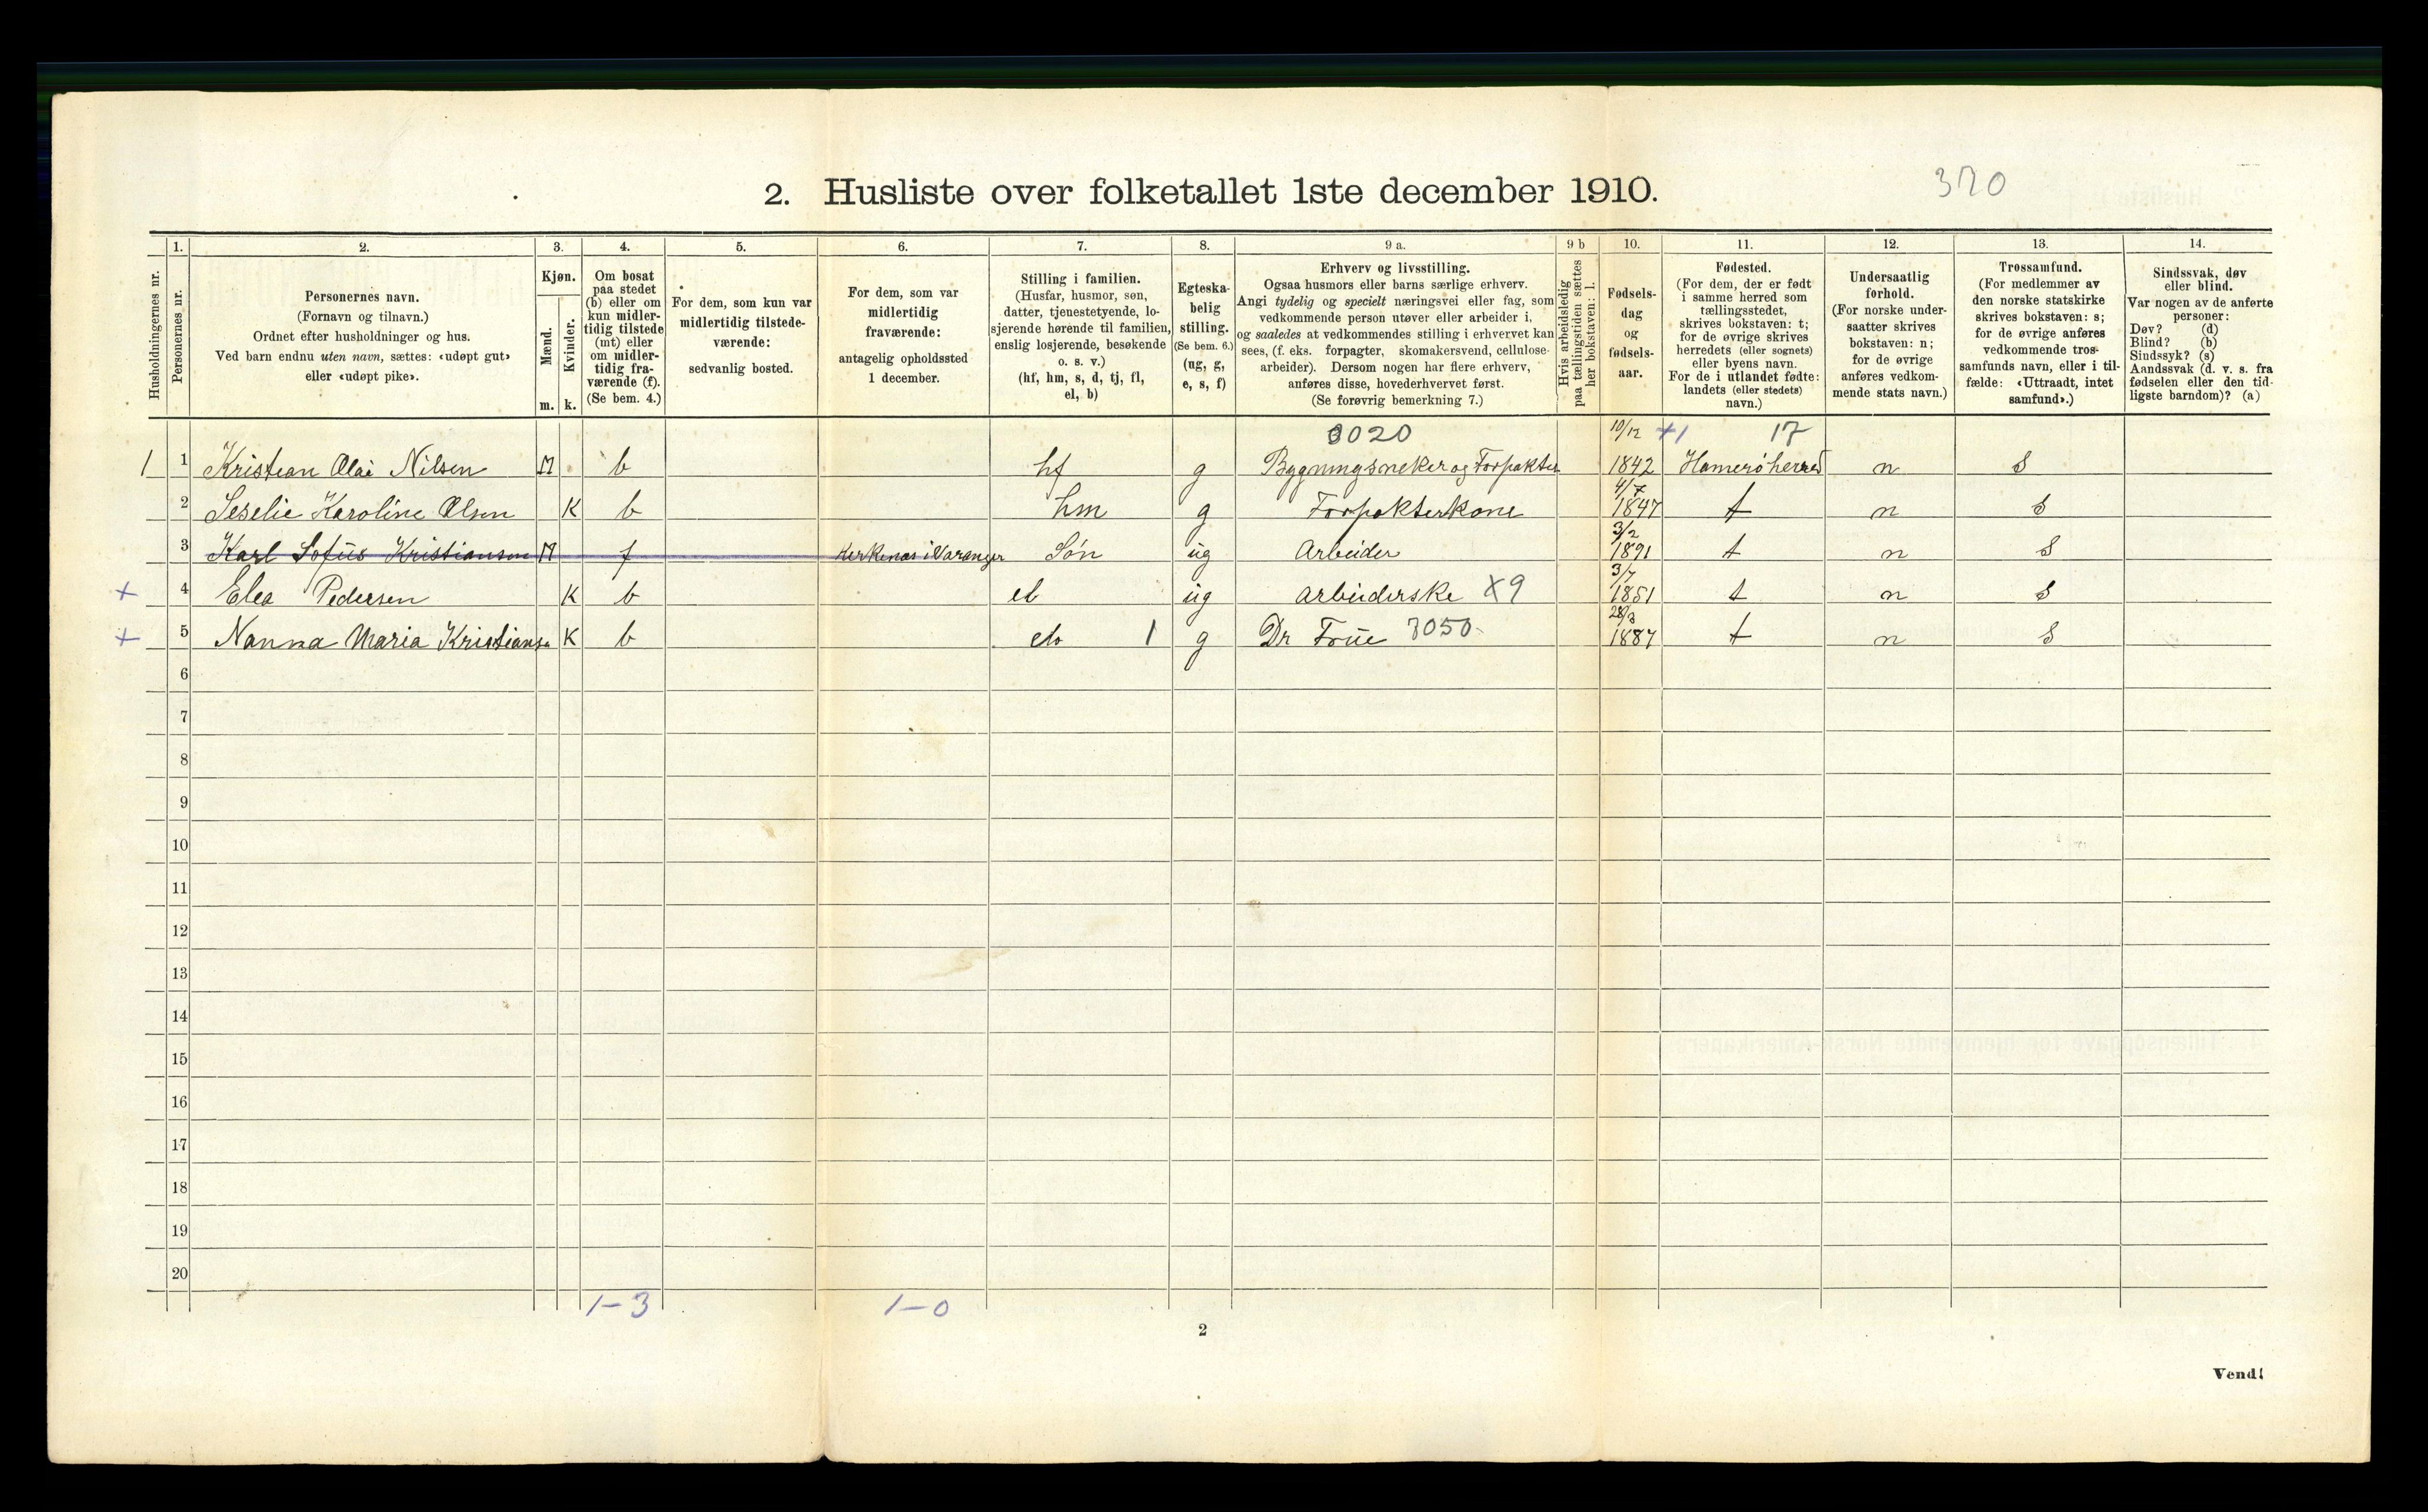 2. Husliste over folketallet 1ste december 1910.
370
Husholdningernes nr.
1.
Personernes nr.
2.
Personernes navn.
(Fornavn og tilnavn.)
Ordnet efter husholdninger og hus.
Ved barn endnu uten navn, sættes: «udøpt gut»
eller «udøpt pike».
3.
Kjøn.
Mænd.
m.
Kvinder.
k.
4.
Om bosat
paa stedet
(b) eller om
kun midler-
tidig tilstede
(mt) eller
om midler-
tidig fra-
værende (f).
(Se bem. 4.)
5.
For dem, som kun var
midlertidig tilstede-
værende:
sedvanlig bosted.
6.
For dem, som var
midlertidig
fraværende:
antagelig opholdssted
1 december.
7.
Stilling i familien.
(Husfar, husmor, søn,
datter, tjenestetyende, lo-
sjerende hørende til familien,
enslig losjerende, besøkende
o. s. v.)
(hf, hm, s, d, tj, fl,
el, b)
8.
Egteska-
belig
stilling.
(Se bem. 6.)
(ug, g,
e, s, f)
9 a.
Erhverv og livsstilling.
Ogsaa husmors eller barns særlige erhverv.
Angi tydelig og specielt næringsvei eller fag, som
vedkommende person utøver eller arbeider i,
og saaledes at vedkommendes stilling i erhvervet kan
sees, (f. eks. forpagter, skomakersvend, cellulose-
arbeider). Dersom nogen har flere erhverv,
anføres disse, hovederhvervet først.
(Se forøvrig bemerkning 7.)
9 b
Hvis arbeidsledig
paa tællingstiden sættes
her bokstaven: l.
10.
Fødsels-
dag
og
fødsels-
aar.
11.
Fødested.
(For dem, der er født
i samme herred som
tællingsstedet,
skrives bokstaven: t;
for de øvrige skrives
herredets (eller sognets)
eller byens navn.
For de i utlandet fødte:
landets (eller stedets)
navn.)
12.
Undersaatlig
forhold.
(For norske under-
saatter skrives
bokstaven: n;
for de øvrige
anføres vedkom-
mende stats navn.)
13.
Trossamfund.
(For medlemmer av
den norske statskirke
skrives bokstaven: s;
for de øvrige anføres
vedkommende tros-
samfunds navn, eller i til-
fælde: «Uttraadt, intet
samfund».)
14.
Sindssvak, døv
eller blind.
Var nogen av de anførte
personer:
Døv? (d)
Blind? (b)
Sindssyk? (s)
Aandssvak (d. v. s. fra
fødselen eller den tid-
ligste barndom)? (a)
3020 10/12 +1 17
1 1 Kristian Olai Nilsen M b hf g Bygningsneker og Forpakter 1842 Hamerö herred n S
2 Seselie Karoline Olsen K b hm g Forpakterkone 4/7 1847 t n S
3 Karl Sofus Kristiansen M f Kerkenæs i Varanger Søn ug Arbeider 3/2 1891 t n S
+ 4 Elea Pedersen K b el ug arbeiderske X9 3/7 1851 t n S
+ 5 Nanna Maria Kristiansen K b 1 g Dr Frue 3050 1887 t n S
6
7
8
9
10
11
12
13
14
15
16
17
18
19
20
1-3 1-0
2
Vend!